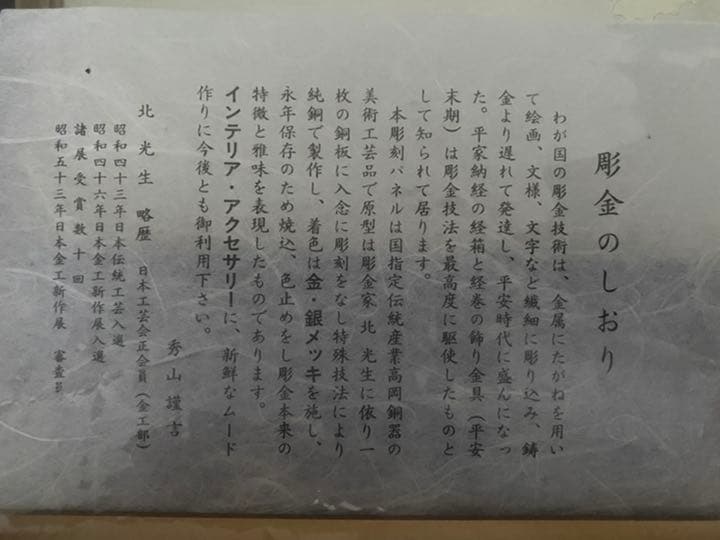 彫金のしおり
わが国の彫金技術は、金属にたがねを用い
て絵画、文様、文字など繊細に彫り込み、鋳
金より遅れて発達し、平安時代に盛んになっ
た。平家納経の経箱と経巻の飾り金具（平安
末期）は彫金技法を最高度に駆使したものと
して知られて居ります。
本彫刻パネルは国指定伝統産業高岡銅器の
美術工芸品で原型は彫金家 北 光生に依り一
枚の銅板に入念に彫刻をなし特殊技法により
純銅で製作し、着色は金・銀メッキを施し、
永年保存のため焼込、色止めをし彫金本来の
特微と雅味を表現したものであります。
インテリア・アクセサリーに、新鮮なムード
作りに今後とも御利用下さい。
秀山謹言
北 光生 略歴 日本工芸会正会員（金工部）
昭和四十三年日本伝統工芸入選
昭和四十六年日本金工新作展入選
諸展受賞数十回
昭和五十三年日本金工新作展 審査員